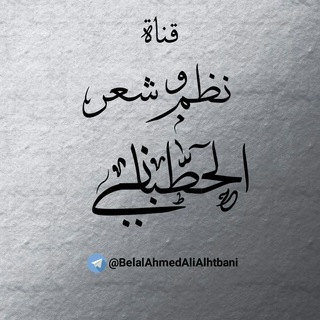 قناة
نظم و شعر
الحطباني
@BelalAhmedAliAlhtbani